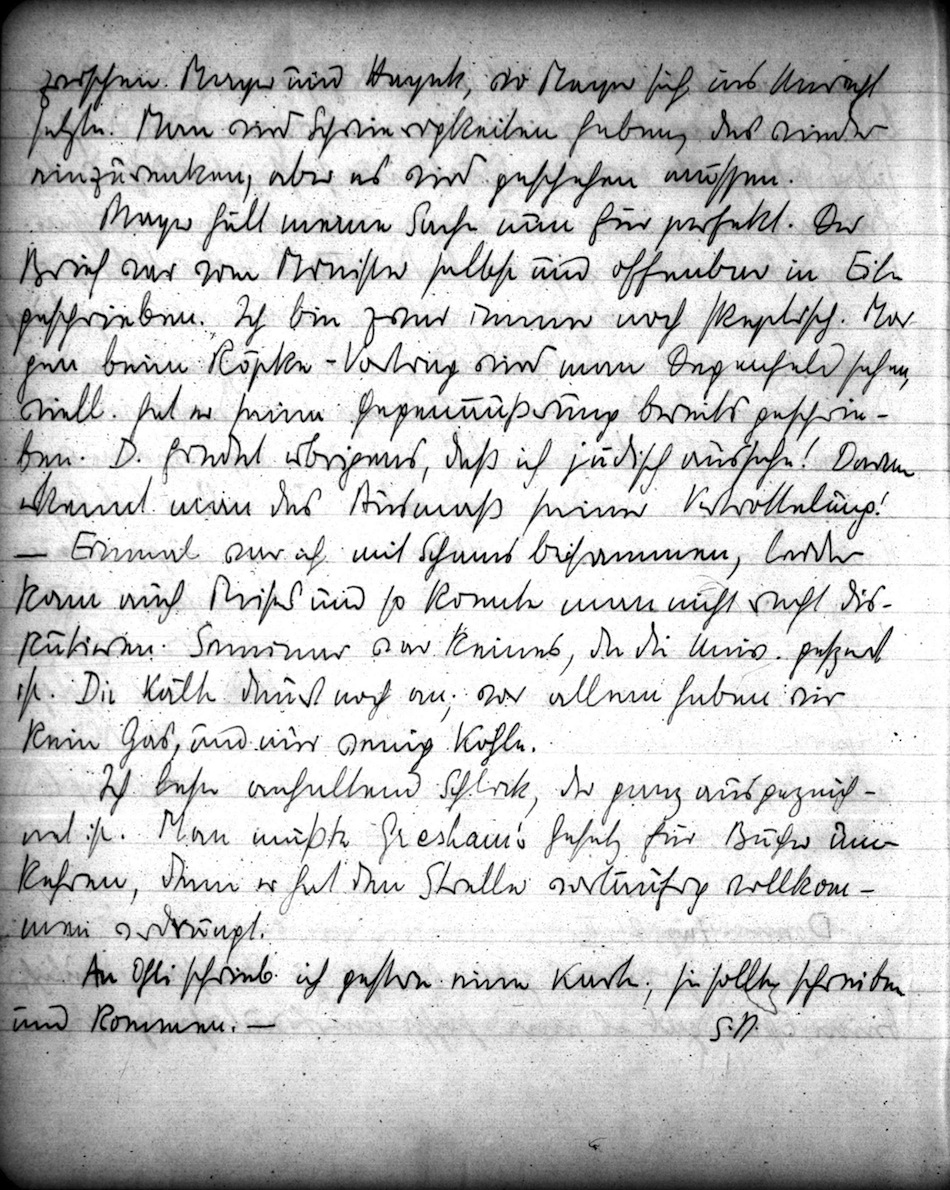 zwischen Mayer und Hayek, wo Mayer sich ins Unrecht
setzte. Man wird Schwierigkeiten haben, das wieder
einzurenken, aber es wird geschehen müssen.
Mayer hält meine Sache nun für perfekt. Der
Brief war vom Minister selbst und offenbar in Eile
geschrieben. Ich bin zwar immer noch skeptisch. Mor-
gen beim Röpke-Vortrag wird man Degenfeld sehen,
viell. hat er seine Gegenäußerung bereits geschrie-
ben. D. findet übrigens, daß ich jüdisch aussehe! Daran
erkennt man das Ausmaß seiner Vertrottelung!
— Einmal war ich mit Schams beisammen, leider
kam auch Mises und so konnte man nicht recht dis-
kutieren. Seminar war keines, da die Univ. gesperrt
ist. Die Kälte dauert noch an; vor allem haben wir
kein Gas, und nur wenig Kohle.
Ich lese anhaltend Schlick, der ganz ausgezeich-
net ist. Man müßte Gresham's Gesetz für Bücher um-
kehren, denn er hat den Strelle vorläufig vollkom-
men verdrängt.
An Ohli schrieb ich gestern eine Karte; sie sollte schreiben
und kommen. —